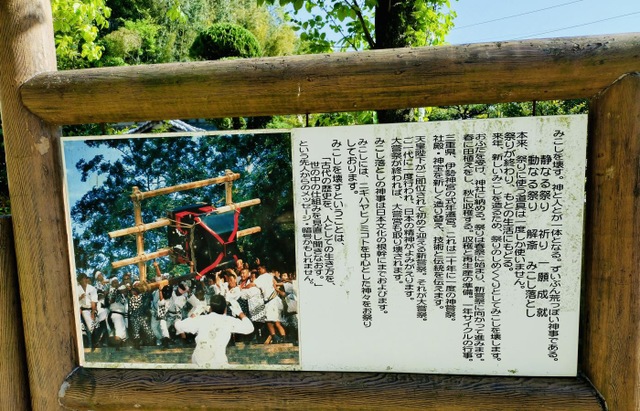 みこしを壊す。神と人とが一体となる。ずいぶん荒っぽい神事である。
静なる祭り 祈り 願成就
動なる祭り 解斎 みこし落とし
本来、祭りに使う道具は一度しか使いません。
祭りが終わり、もとの生活にもどる。
来年、新しいみこしを造るため、祭りのしめくくりとしてみこしを壊します。
おふだを受け、神主に納める。祭りは春祭に始まり、新嘗祭に向かって進みます。
春に田植えをし、秋に収穫する。収穫と再生産の準備。一年サイクルの行事。
三重県、伊勢神宮の式年遷宮。これは二十年に一度の神嘗祭。
社殿・神宝を新しく造り替え、技術と伝統を伝えます。
天皇陛下がご即位されて初めて迎える新嘗祭。それが大嘗祭。
ご一代に一度行われ、日本の精神がよみがえります。
大嘗祭が終われば、大嘗宮も取り壊されます。
みこし落としの神事は、日本文化の根幹にまでおよびます。
みこしには、ニギハヤヒノミコトを中心とした神々をお祭り
しております。
みこしを壊すということは、
「古代の歴史を、人としての生き方を、
世の中の仕組みを見直し聞きなおす。」
という先人からのメッセージ・暗号かもしれません。